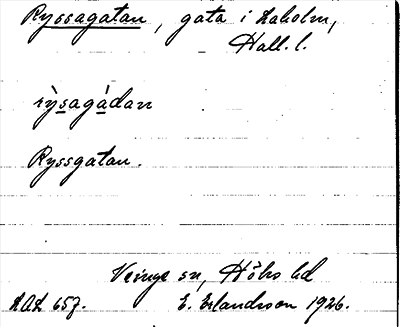 Ryssagatan, gata i Laholm,
Hall. l.
rỳsagàdan
Ryssgatan.
Veinge sn, Höks hd
LAL 657. E. Erlandsson 1926.